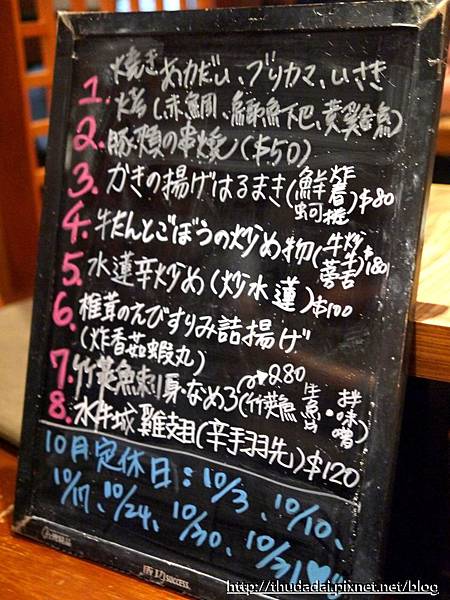 焼き あカだい、ブリカマ、いさき
1. 烤(赤鯛、鰤魚下巴、黃雞魚)
2. 豚頬の串焼 ($50)
3. かきの揚げはるまき(鮮蚵炸春捲) $80
4. 牛たんとごぼうの炒め物(牛蒡炒牛舌) $180
5. 水蓮辛炒め (炒水蓮) $100
6. 椎茸のえびすりみ詰揚げ
(炸香菇蝦丸)
7. 竹莢魚刺身・なめろ(竹莢魚 280
8. 水牛城 雞翅(辛手羽先) $120
10月定休日:10/3、10/10、
10/17、10/24、10/30、10/31
SUCCESS
http://thudadai.pixnet.net/blog